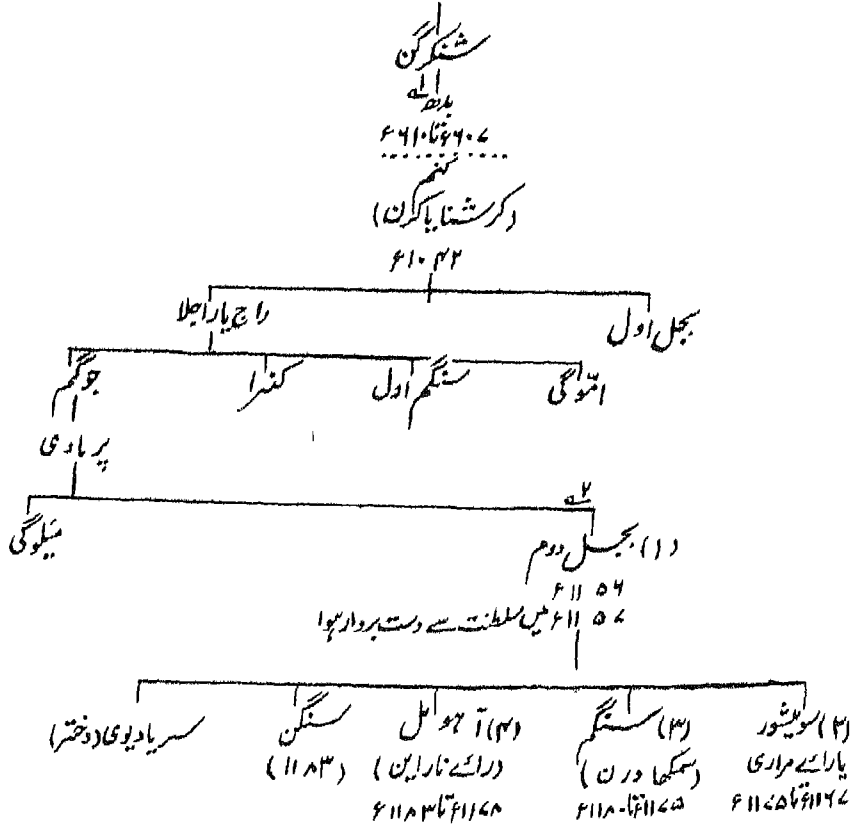 شنکرگن
بدھ
۶۶۰۷تا۶۶۱۰
کنہم
(کرشنا یا کرن)
۱۰۴۲ء
بجل اول
راج یا راجلا
امّوگی
سنگم اول
کنرا
جوگم
پرمادی
(۱) بجل دوم
میلوگی
۱۱۵۶ء
۱۱۵۷ء میں سلطنت سے دست بردار ہوا
(۲) سویشور
یا رائے مراری
۱۱۶۷ء تا ۱۱۷۵ء
(۳) سنگم
(سمکھا ورن)
۱۱۷۵ء تا ۱۱۸۰ء
(۴) آہومل
(رائے نارائن)
۱۱۷۸ء تا ۱۱۸۳ء
سنگن
(۱۱۸۳)
سریادیوی (دختر)